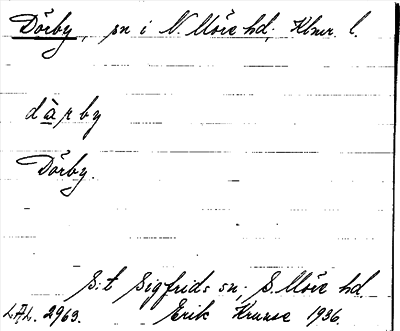 Dörby, sn i N. Möre hd, Kbmr l.
dàrby
Dörby.
S:t Sigfrids sn; S. Möre hd.
LAL. 2963. Erik Kruuse 1936